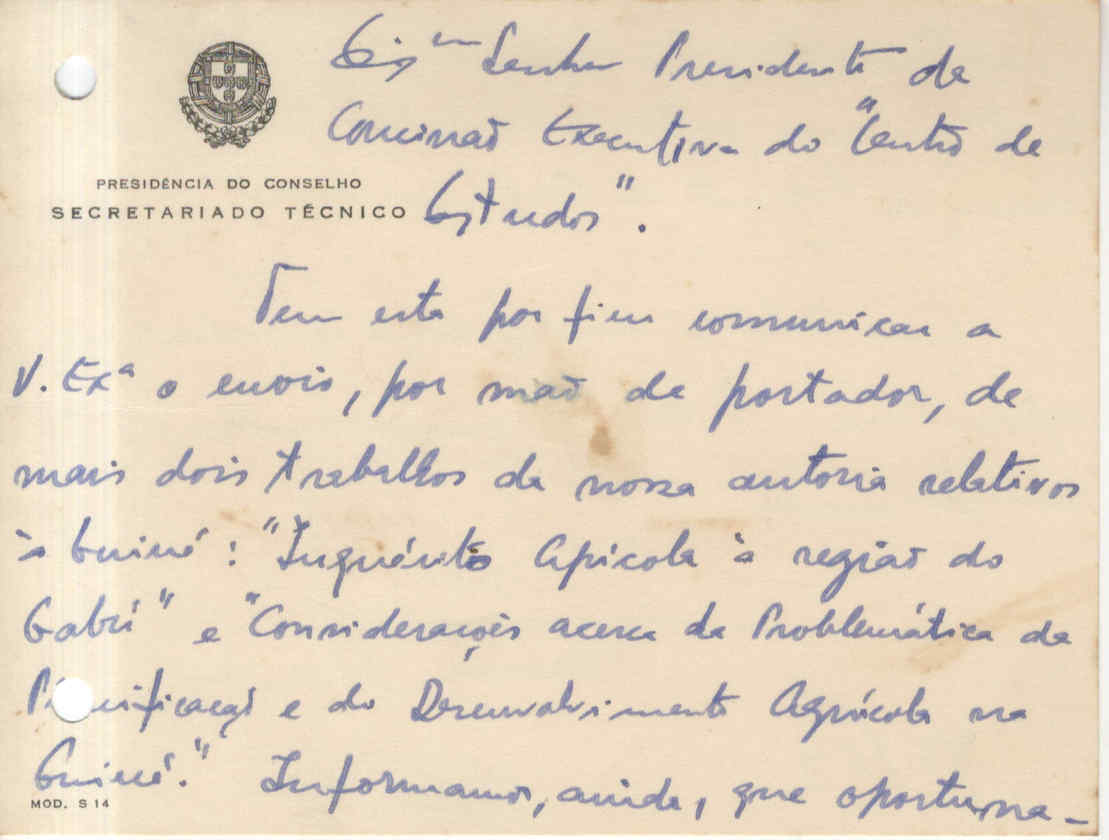 Exmo Senhor Presidente da
Comissão Executiva do "Centro de
PRESIDÊNCIA DO CONSELHO
SECRETARIADO TÉCNICO
Estudos".
Vem esta por fim comunicar a
V. Exª o envio, por mão de portador, de
mais dois trabalhos da nossa autoria relativos
à Guiné: "Inquérito Apícola à região do
Gabú" e "Considerações acerca da Problemática da
Planificação e do Desenvolvimento Agrícola na
Guiné." Informamos, ainda, que oportuna-
MOD. S 14